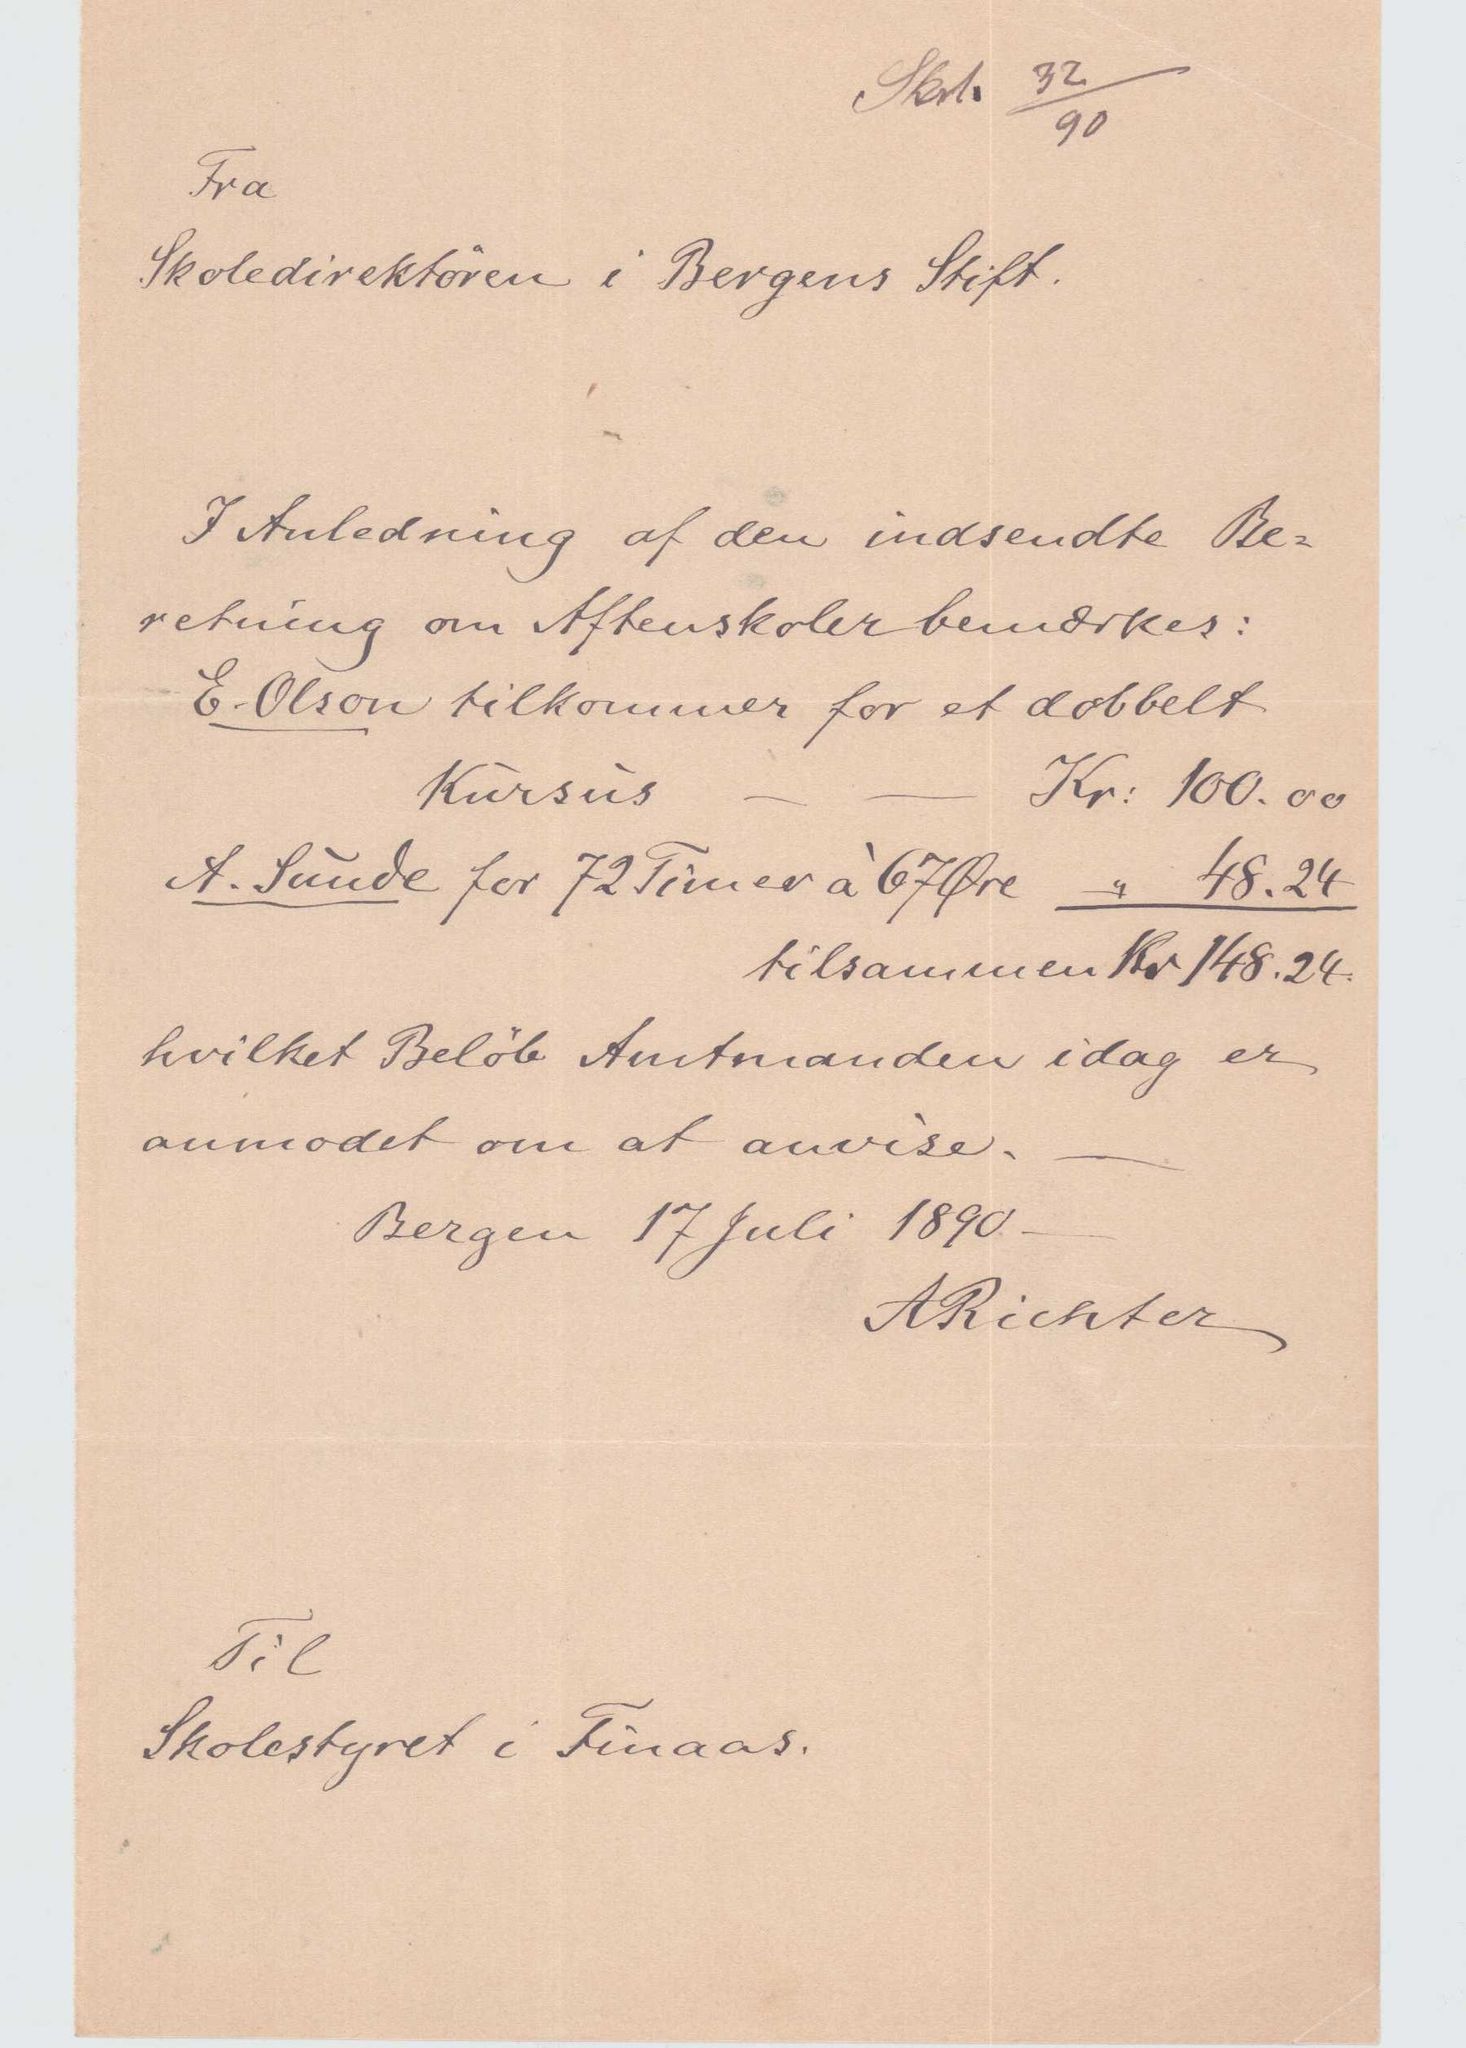 32
90
Fra
Skoledirektören i Bergens Stift.
I Anledning af den indsendte Be=
retning om Aftenskoler bemærkes:
E. Olson tilkommer for et dobbelt
Kursus — — Kr: 100.00
A. Sunde for 72 Timer à 67 Øre „ 48.24
tilsammen Kr 148.24.
hvilket Belöb Amtmanden idag er
anmodet om at anvise. —
Bergen 17 Juli 1890 —
ARichter
Til
Skolestyret i Finaas.